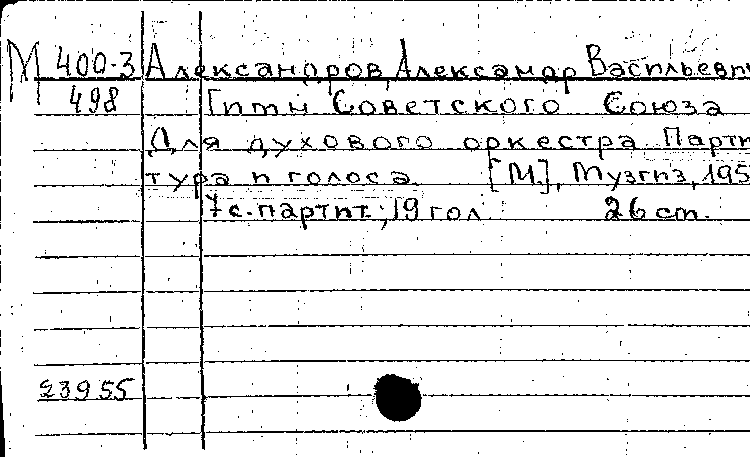 М 400-3 Александров, Александр Васильеви
498 Гимн Советского Союза
Для духового оркестра Парти
тура и голоса. [М.], Музгиз, 195
7 с. партит.; 19 гол 26 cm.
23955